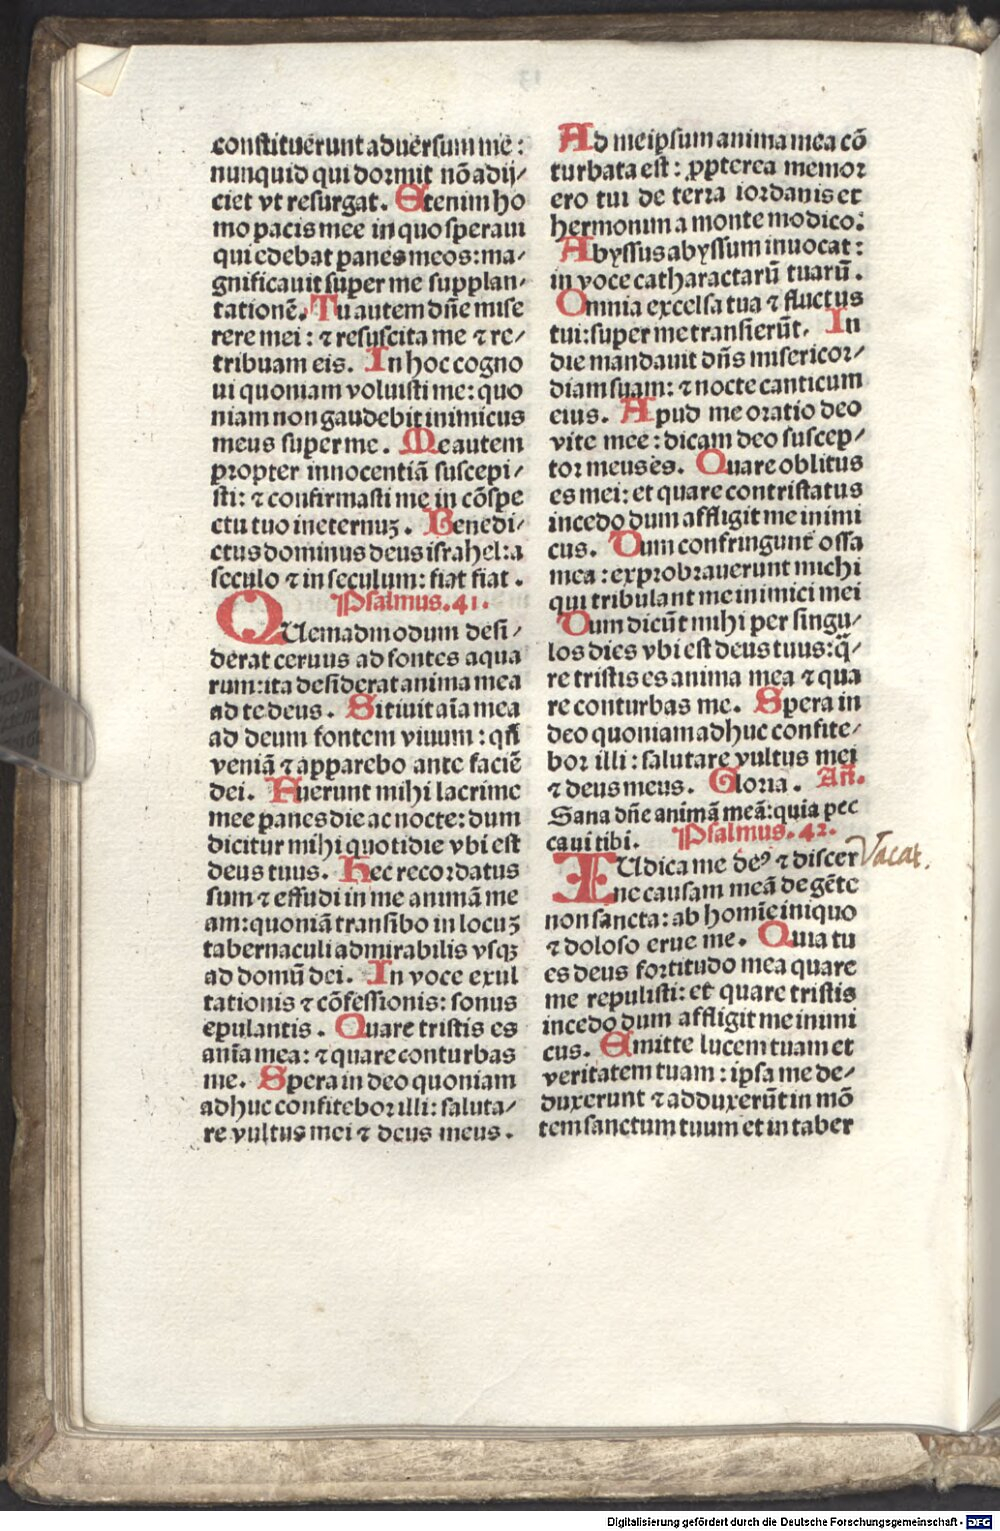 constituerunt aduersum me:
nunquid qui dormit nō adij/
ciet vt resurgat. Etenim ho
mo pacis mee in quo speraui
qui edebat panes meos: ma/
gnificauit super me supplan/
tationē. Tu autem dn̄e mise
rere mei: ⁊ resuscita me ⁊ re/
tribuam eis. In hoc cogno
ui quoniam voluisti me: quo
niam non gaudebit inimicus
meus super me. Me autem
propter innocentiā suscepi/
sti: ⁊ confirmasti me in cōspe
ctu tuo in eternuꝫ. Benedi/
ctus dominus deus israhel: a
seculo ⁊ in seculum: fiat fiat.
Psalmus. 41.
QUemadmodum desi/
derat ceruus ad fontes aqua
rum: ita desiderat anima mea
ad te deus. Sitiuit aīa mea
ad deum fontem viuum: qn̄
veniā ⁊ apparebo ante faciē
dei. Fuerunt mihi lacrime
mee panes die ac nocte: dum
dicitur mihi quotidie vbi est
deus tuus. Hec recordatus
sum ⁊ effudi in me animā me
am: quoniā transibo in locuꝫ
tabernaculi admirabilis vsqꝫ
ad domū dei. In voce exul
tationis ⁊ cōfessionis: sonus
epulantis. Quare tristis es
anīa mea: ⁊ quare conturbas
me. Spera in deo quoniam
adhuc confitebor illi: saluta/
re vultus mei ⁊ deus meus.
Ad meipsum anima mea cō
turbata est: ꝓpterea memor
ero tui de terra iordanis et
hermonim a monte modico:
Abyssus abyssum inuocat:
in voce catharactarū tuarū.
Omnia excelsa tua ⁊ fluctus
tui: super me transierūt. In
die mandauit dn̄s misericor/
diam suam: ⁊ nocte canticum
eius. Apud me oratio deo
vite mee: dicam deo suscep/
tor meus es. Quare oblitus
es mei: et quare contristatus
incedo dum affligit me inimi
cus. Dum confringunt ossa
mea: exprobrauerunt michi
qui tribulant me inimici mei
Dum dicūt mihi per singu/
los dies vbi est deus tuus: q̄/
re tristis es anima mea ⁊ qua
re conturbas me. Spera in
deo quoniam adhuc confite/
bor illi: salutare vultus mei
⁊ deus meus. Gloria. An̄.
Sana dn̄e animā meā: quia pec
caui tibi. Psalmus. 42.
IUdica me deꝰ ⁊ discer Vacat.
ne causam meā de gēte
non sancta: ab homīe iniquo
⁊ doloso erue me. Quia tu
es deus fortitudo mea quare
me repulisti: et quare tristis
incedo dum affligit me inimi
cus. Emitte lucem tuam et
veritatem tuam: ipsa me de/
duxerunt ⁊ adduxerūt in mō
tem sanctum tuum et in taber
Digitalisierung gefördert durch die Deutsche Forschungsgemeinschaft - DFG